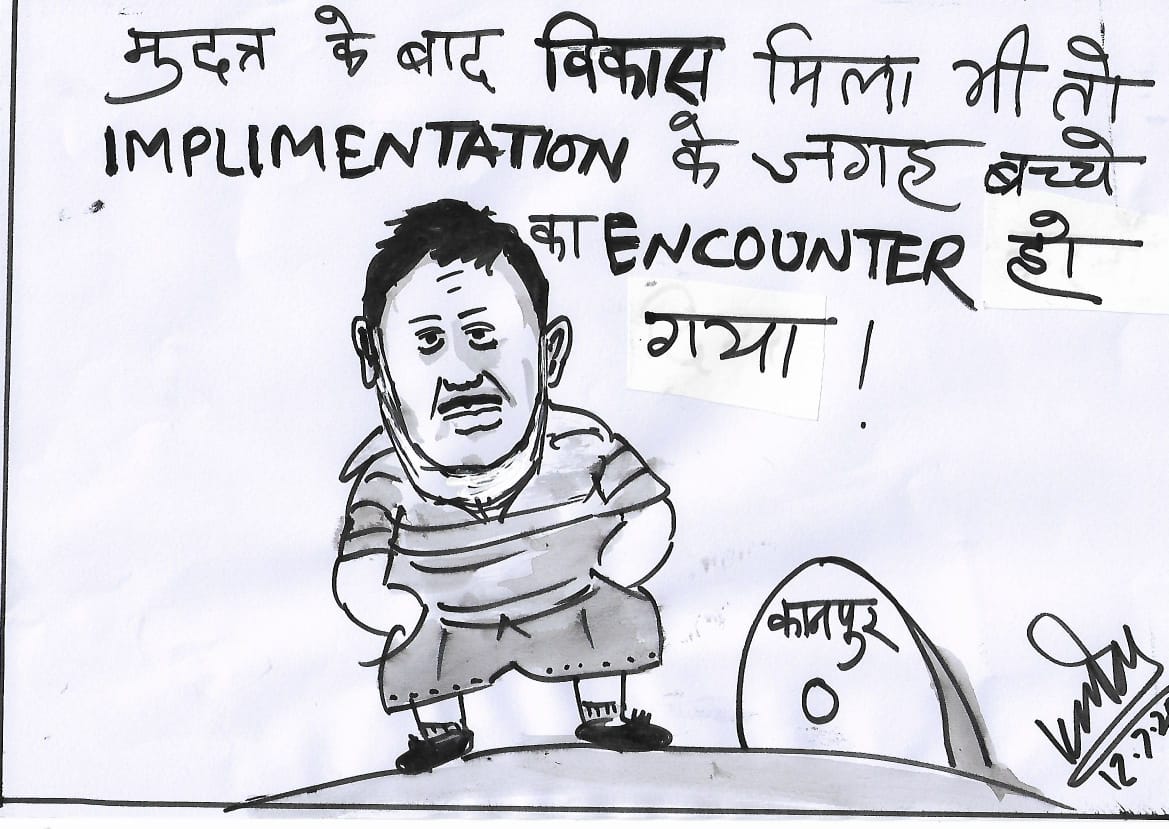 मुदत्न के बाद विकास मिला भी तो
IMPLIMENTATION के जगह बच्चे
का ENCOUNTER हो
गया !
कानपुर
0
12.7.20